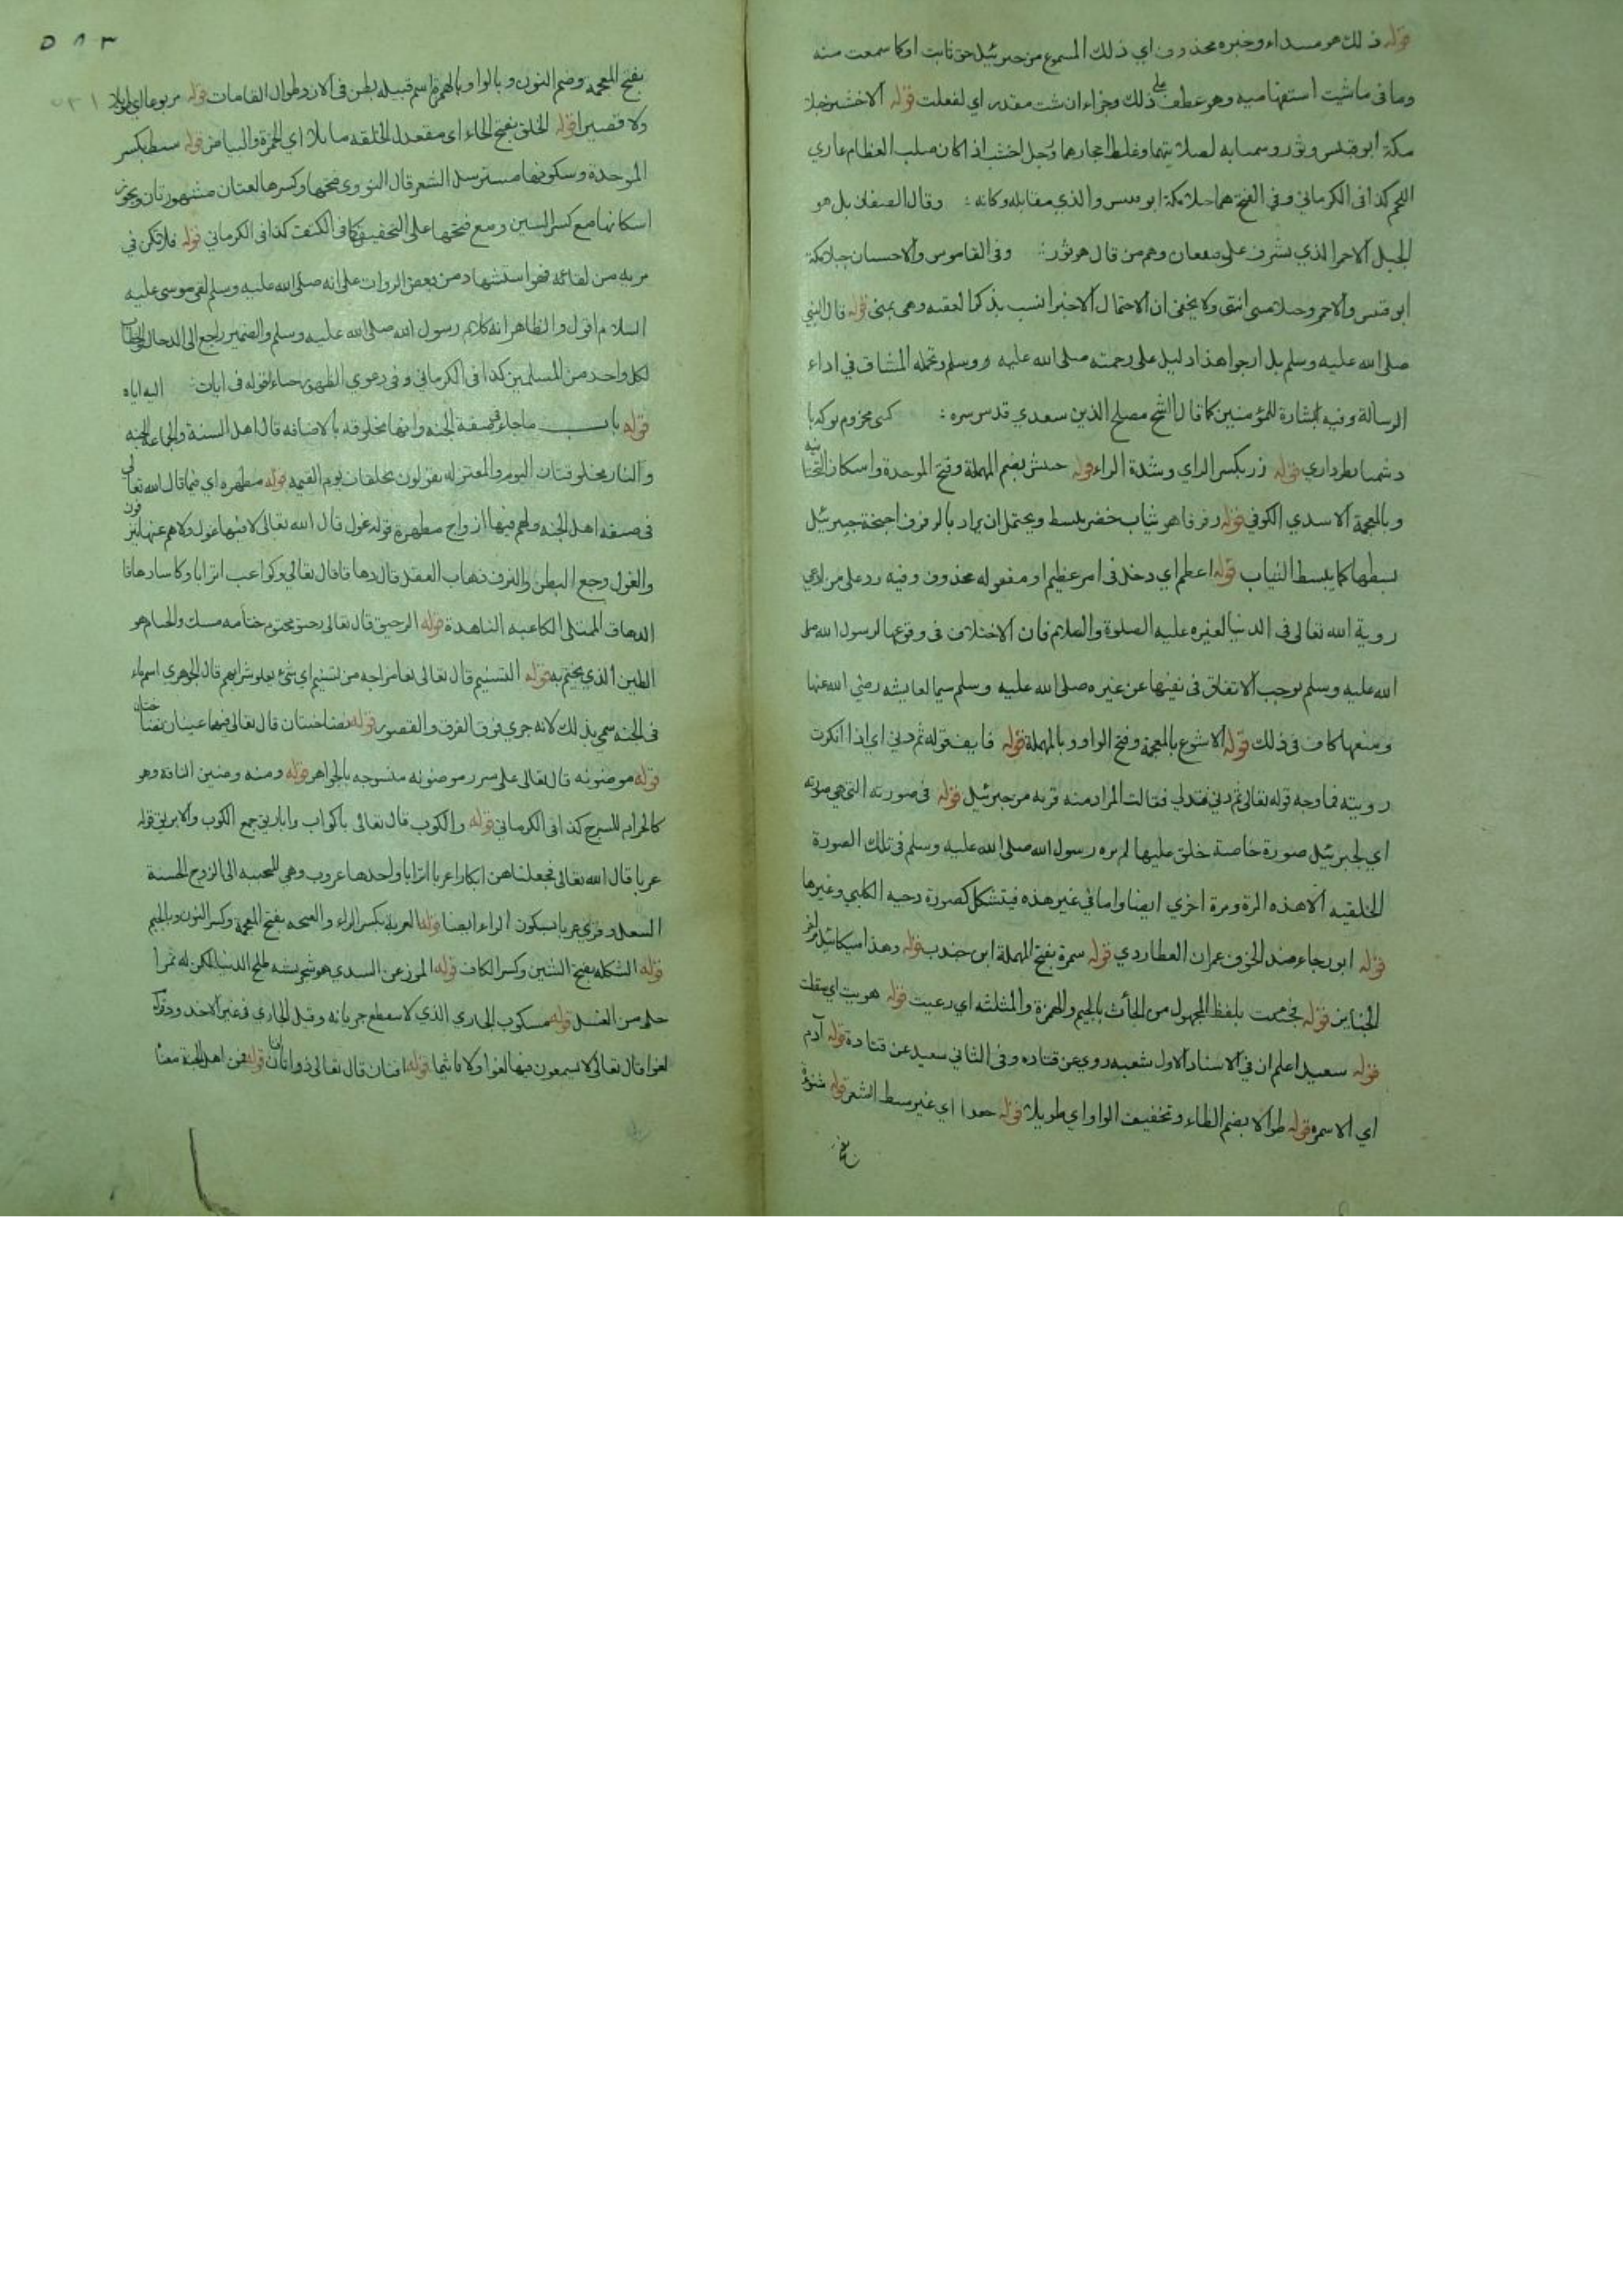 قوله ذلك هو مبتداء وخبره محذوف اي ذلك المسموع من جبرئيل حق ثابت او كما سمعت منه
وما في ما شيت استفهاميه وهو عطف على ذلك وجزاء ان شت مقدر اي لفعلت قوله الاخشبين جبلا
مكة ابو قبيس وثور وسميا به لصلابتهما وغلظ احجارهما ورجل اخشب اذا كان صلب العظام عاري
اللحم كذا في الكرماني وفي الفتح هما جبلا مكة ابو قبيس والذي مقابله وكانه وقال الصغان بل هو
الجبل الاحمر الذي يشرف على قعيقعان وهم من قال هو ثور وفي القاموس والاخشبان جبلا مكة
ابو قبيس والاحمر وجبلا منى انتهى ولا يخفى ان الاحتمال الاخير انسب بذكر العقبه وهي بمنى قوله قال النبي
صلى الله عليه وسلم بل ارجوا هذا دليل على رحمته صلى الله عليه ووسلم وتحمله المشاق في اداء
الرسالة وفيه بشارة للمؤمنين كما قال الشيخ مصلح الذين سعدي قدس سره كى محروم
قوله زر بكسر الزاي وشدة الراء قوله حبيش بضم المهملة وفتح الموحدة واسكان التحتانيه
وبالمعجمة الاسدي الكوفي قوله رفرفا هو ثياب خضر يبسط ويحتمل ان يراد بالرفرف اجنحة جبرئيل
يبسطها كما يبسط الثياب قوله اعظم اي دخل في امر عظيم او مفعوله محذوف وفيه رد على من ادعى
روية الله تعالى في الدنيا لغيره عليه الصلوة والسلام فان الاختلاف في وقوعها لرسول الله صلى
الله عليه وسلم يوجب الاتفاق في نفيها عن غيره صلى الله عليه وسلم سيما لعايشه رضي الله عنها
ومنعها كاف في ذلك قوله الاشوع بالمعجمة وفتح الواو وبالمهملة قوله فاين قوله ثم دنى اي اذا انكرت
رويته فما وجه قوله تعالى ثم دنى فتدلى فقالت المراد منه قربه من جبرئيل قوله في صورته التي هي صورته
اي لجبرئيل صورة خاصة خلق عليها لم يره رسول الله صلى الله عليه وسلم في تلك الصورة
الخلقيه الا هذه المرة ومرة اخرى ايضا واما في غير هذه فيتشكل كصورة دحيه الكلبي وغيرها
قوله ابو رجاء ضد الخوف عمران العطاردي قوله سمرة بفتح المهملة ابن جندب قوله وهذا ميكائيل مر في اخر
الجنايز قوله فجئثت بلفظ المجهول من الجأث بالجيم والهمزة والمثلثه اي رعبت قوله هويت اي سقطت
قوله سعيد اعلم ان في الاسناد الاول شعبه روي عن قتاده وفي الثاني سعيد عن قتادة قوله آدم
اي الاسمر قوله طوالا بضم الطاء وتخفيف الواو اي طويلا قوله جعدا اي غير سبط الشعر قوله شنوة
بفتح
٥٨٣
بفتح المعجمه وضم النون وبالواو وبالهمزة اسم قبيله بطن في الازد طوال القامات قوله مربوعا اي لا طويلا
ولا قصيرا قوله الخلق بفتح الخاء اي معتدل الخلقه مايلا اي الى الحمرة والبياض قوله سبط بكسر
الموحدة وسكونها مسترسل الشعر قال النووي فتحها وكسرها لغتان مشهورتان ويجوز
اسكانها مع كسر السين ومع فتحها على التخفيف كما في الكتف كذا في الكرماني قوله فلا تكن في
مريه من لقائه فهو استشهاد من بعض الروات على انه صلى الله عليه وسلم لقي موسى عليه
السلام اقول والظاهر انه كلام رسول الله صلى الله عليه وسلم والضمير راجع الى الدجال والخطاب
لكل واحد من المسلمين كذا في الكرماني وفي دعوى الظهور خفاء لقوله في ايات اليه اياه
قوله باب ما جاء في صفة الجنه وانها مخلوقه بالاضافه قال اهل السنة والجماعة الجنه
والنار مخلوقتان اليوم والمعتزله يقولون تخلقان يوم القيمه قوله مطهره اي فيما قال الله تعالى
في صفه اهل الجنه ولهم فيها ازواج مطهرة قوله غول قال الله تعالى لا فيها غول ولا هم عنها ينزفون
والغول وجع البطن والنزف ذهاب العقل قال دهاقا قال تعالى وكواعب اترابا وكاسا دهاقا
الدهاق الممتلى الكاعبه الناهدة قوله الرحيق قال تعالى رحيق مختوم ختامه مسك والختام هو
الطين الذي يختم به قوله التسنيم قال تعالى ومزاجه من تسنيم اي شئ يعلو شرابهم قال الجوهري اسم ماء
في الجنه سمي بذلك لانه جري فوق الغرف والقصور قوله نضاختان قال تعالى فيهما عينان نضاختان
قوله موضونه قال تعالى على سرر موضونه منسوجه بالجواهر قوله ومنه وضين الناقه وهو
كالحزام للسرج كذا في الكرماني قوله والكوب قال تعالى باكواب واباريق جمع الكوب والابريق قوله
عربا قال الله تعالى فجعلناهن ابكارا عربا اترابا واحدها عروب وهي المتحببه الى الزوج الحسنة
التبعل وقرئ عربا بسكون الراء ايضا قوله العربة بكسر الراء والغنجه بفتح المعجمة وكسر النون وبالجيم
قوله الشكله بفتح الشين وكسر الكاف قوله الموز عن السدي هو شجر يشبه طلح الدنيا لكن له ثمر ا
حلى من العسل قوله مسكوب الجاري الذي لا ينقطع جريانه وقيل الجاري في غير الاخدود قوله
لغوا قال تعالى لا يسمعون فيها لغوا ولا تاثيما قوله افنان قال تعالى ذواتا افنان